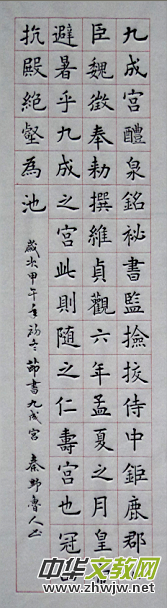 九成宮醴泉銘祕書監撿挍侍中鉅鹿郡
臣魏徵奉勅撰維貞觀六年孟夏之月皇
避暑乎九成之宮此則隨之仁壽宮也冠
抗殿絕壑為池
歲次甲午年初冬節書九成宮 秦野魯人
中华文教网
www.zhwjw.net